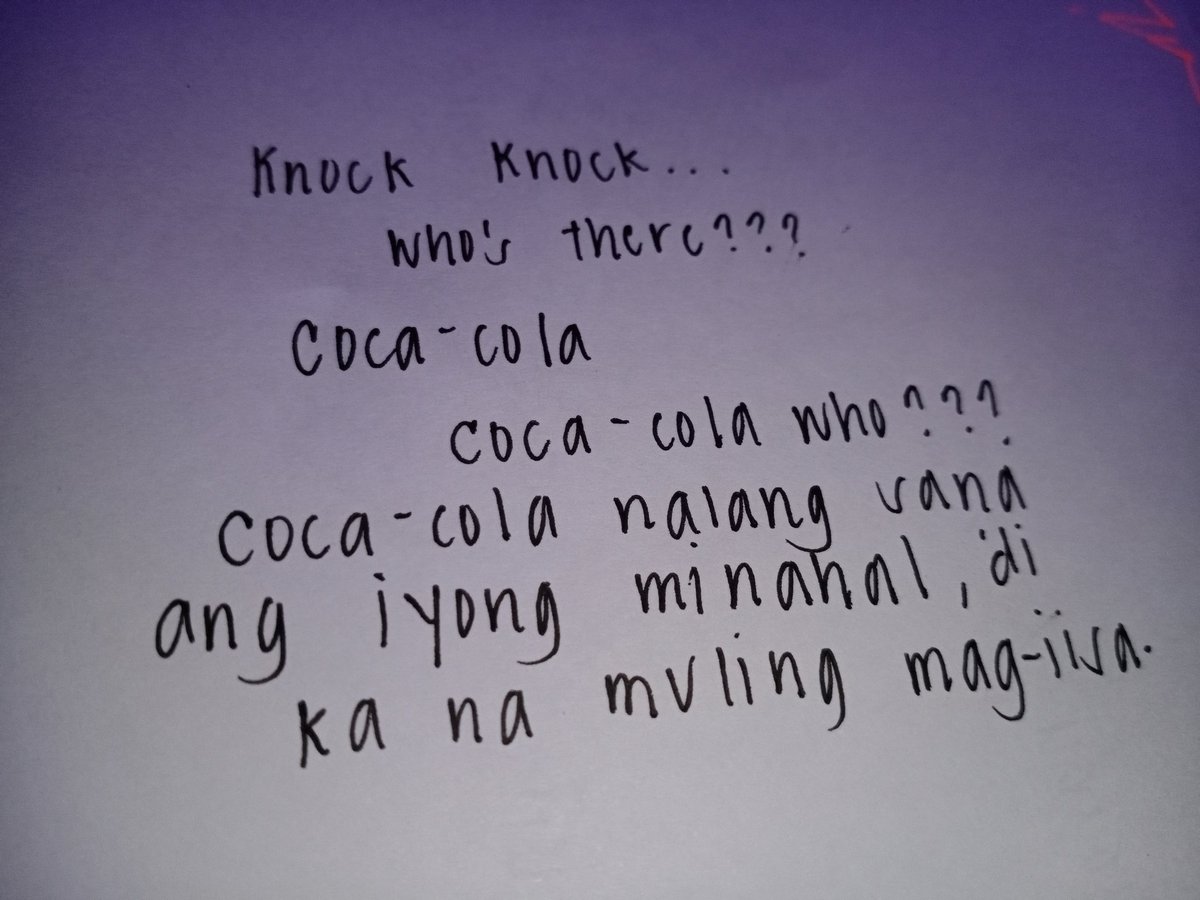 Knock Knock...
who's there???
coca-cola
coca-cola who???
coca-cola nalang sana
ang iyong minahal, 'di
ka na muling mag-iisa.